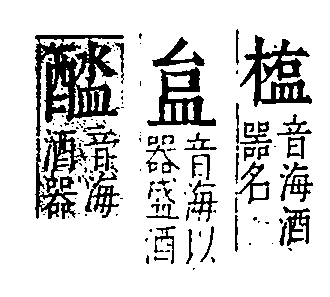 音海酒
器名
音海以
器盛酒
音海
酒器